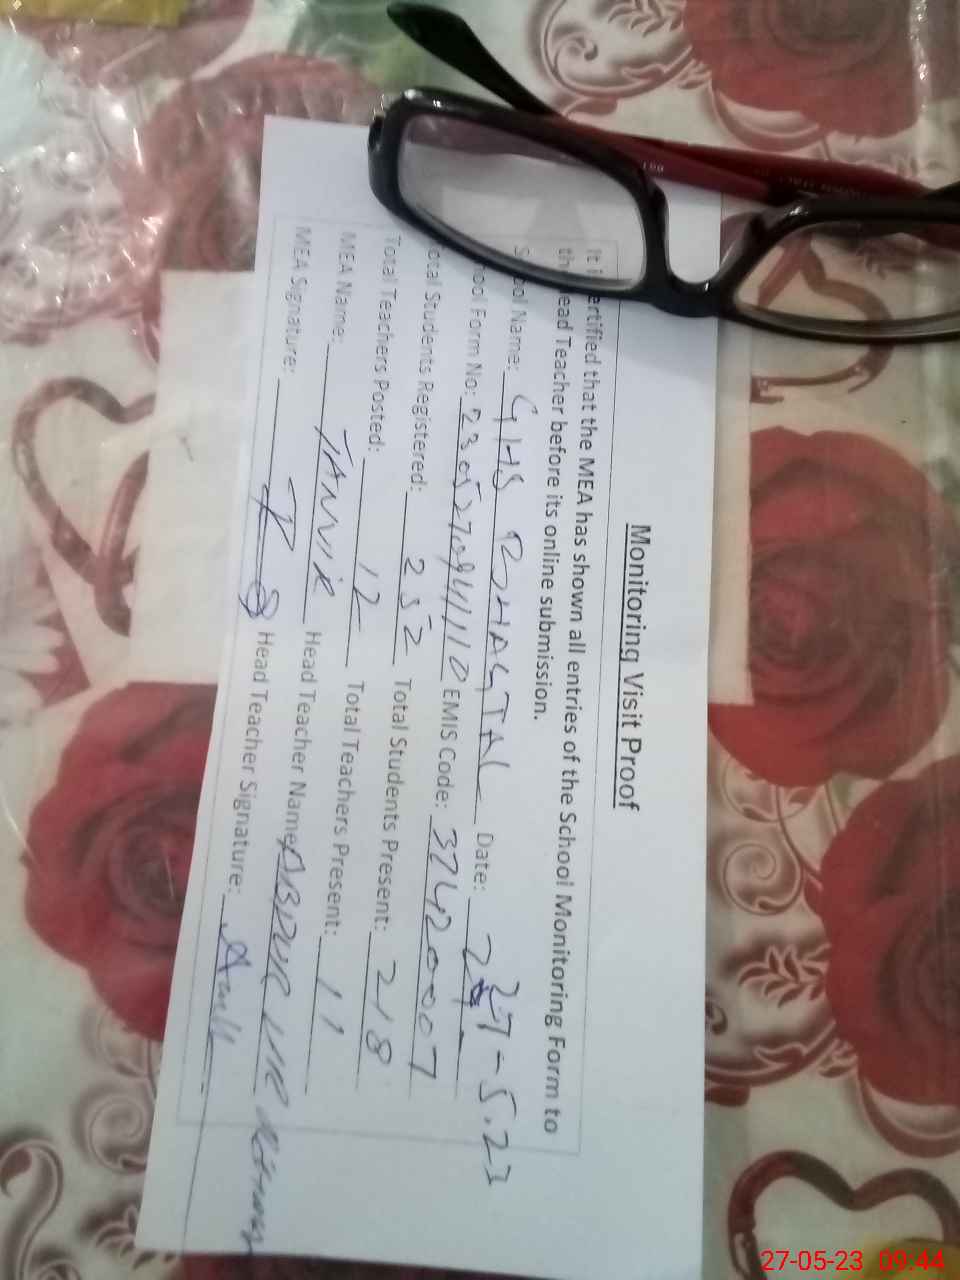 Monitoring Visit Proof
It is certified that the MEA has shown all entries of the School Monitoring Form to
the Head Teacher before its online submission.
School Name: GHS BHAGTAL Date: 27-5.23
School Form No: 230527094110 EMIS Code: 37420007
Total Students Registered: 252 Total Students Present: 218
Total Teachers Posted: 12 Total Teachers Present: 11
MEA Name: TANVIR Head Teacher Name: ABDUR REHMAN
MEA Signature: Head Teacher Signature:
27-05-23 09:44